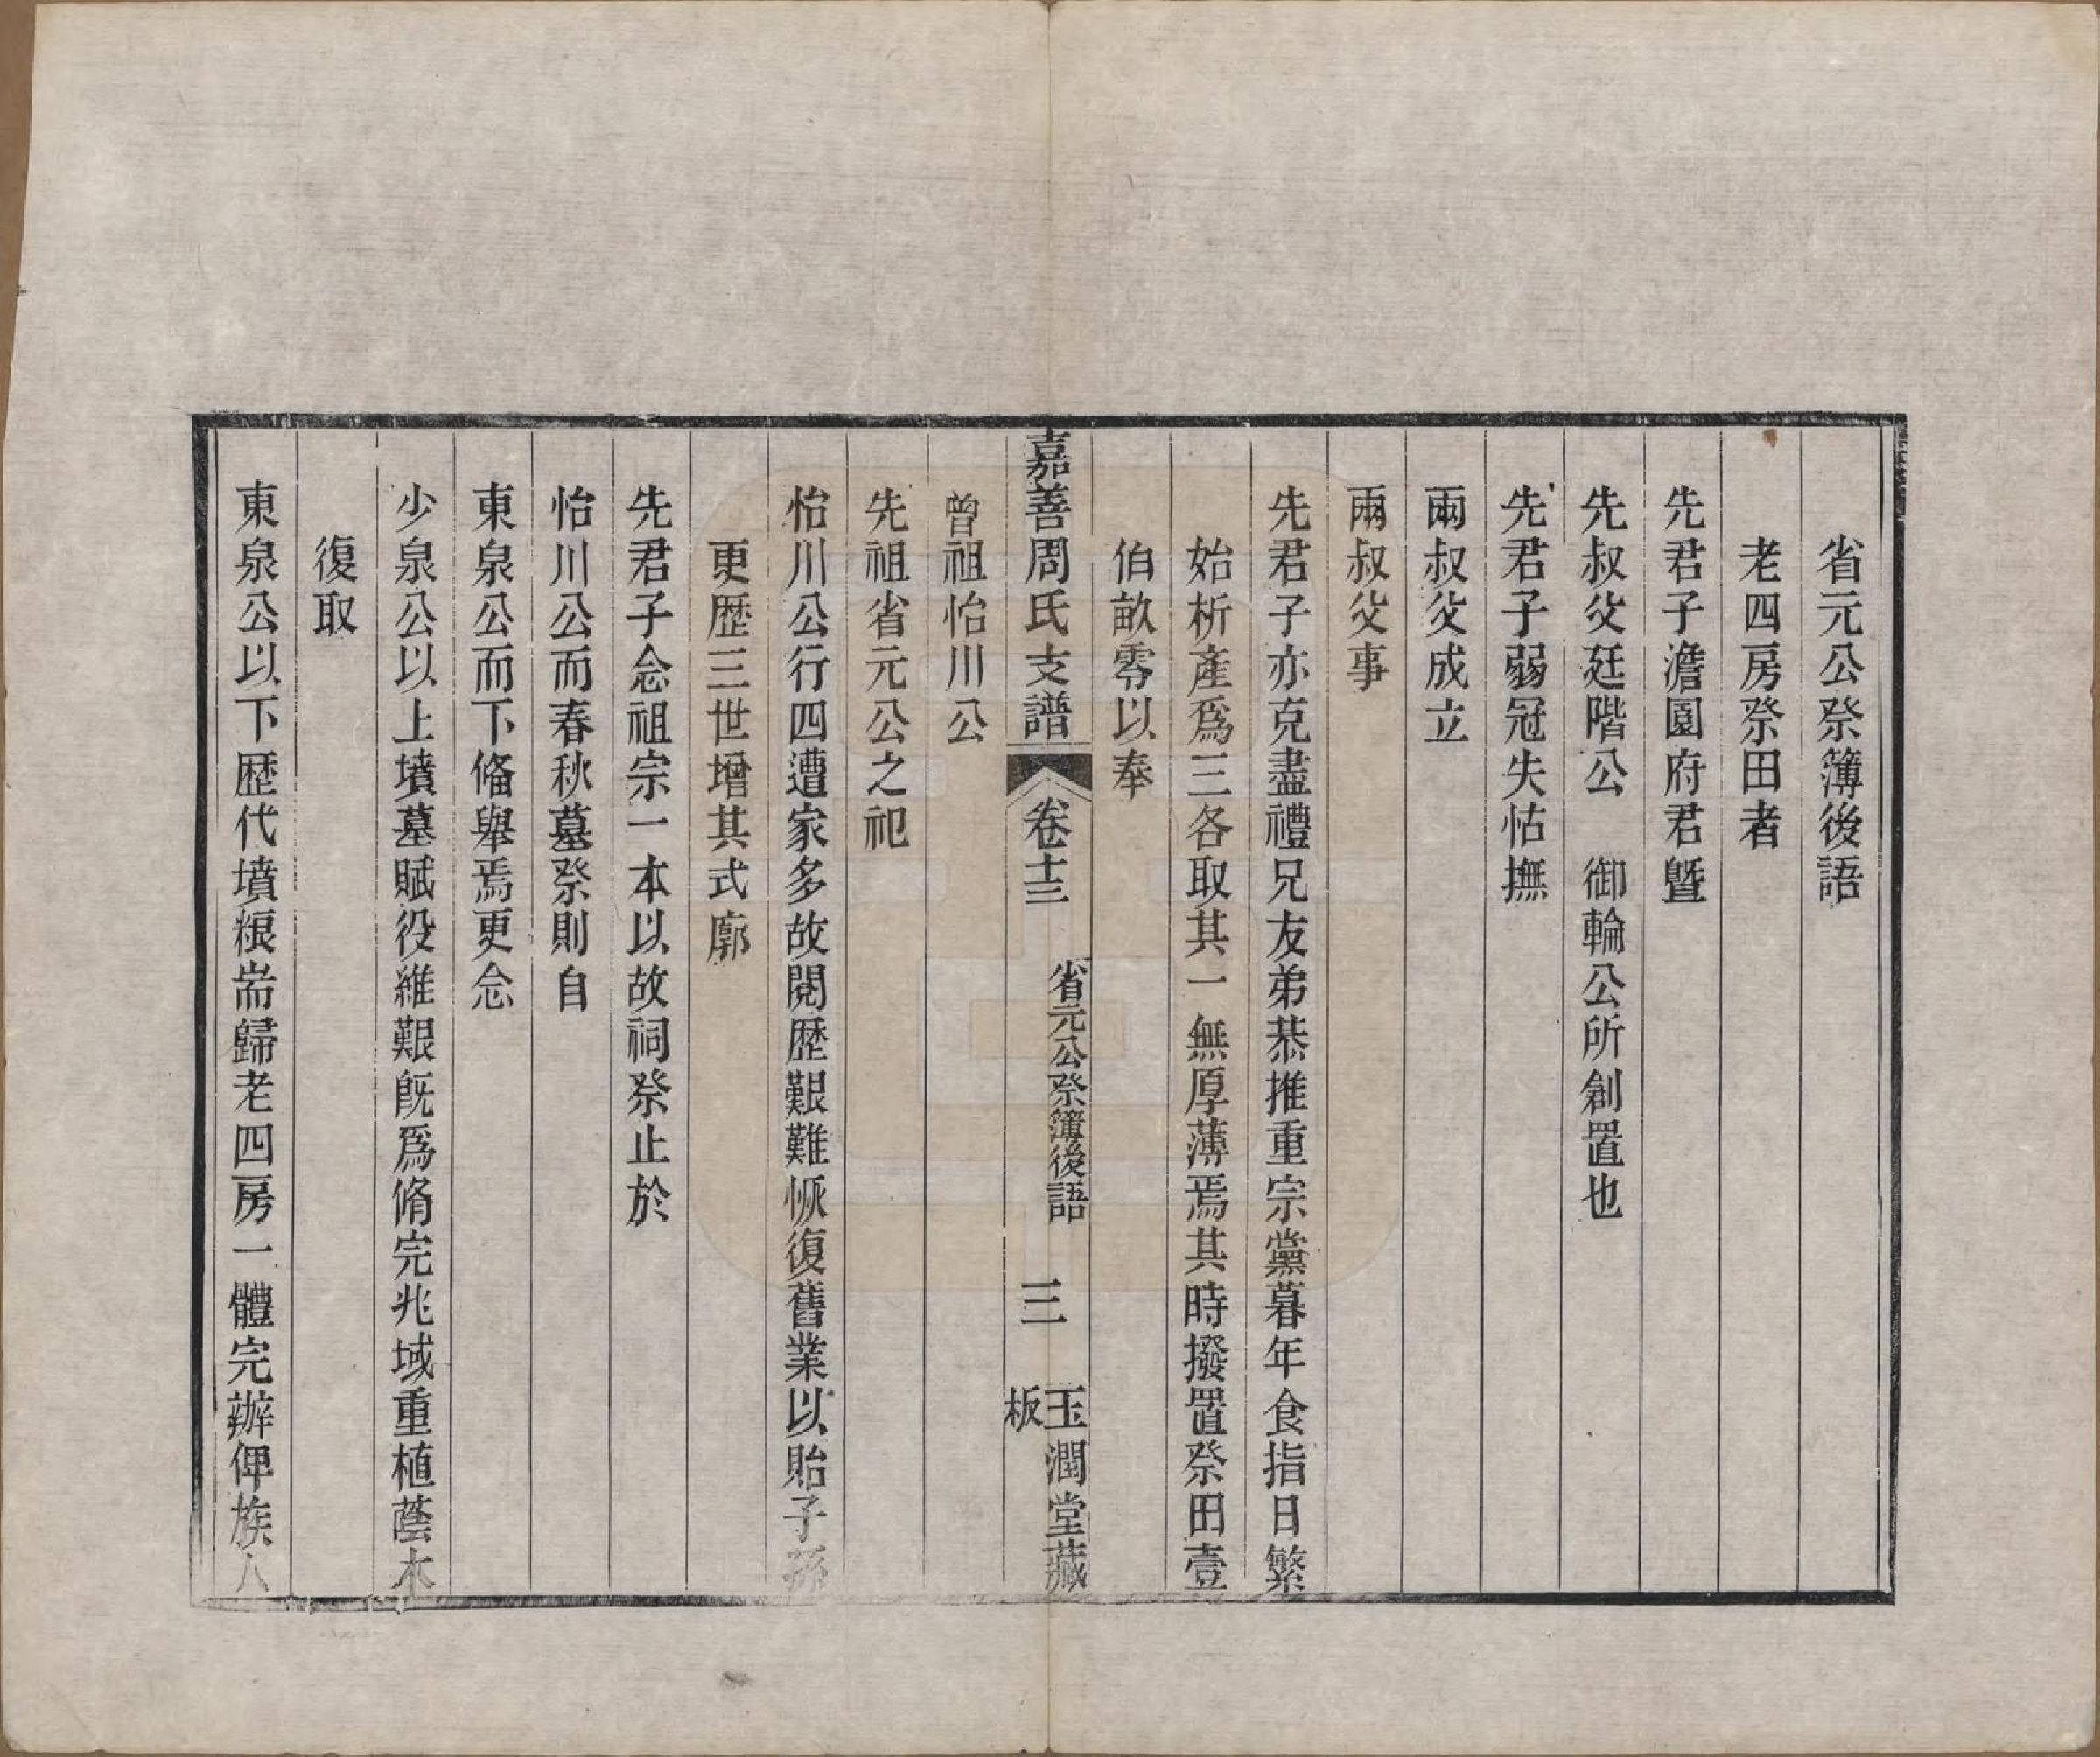 省元公祭簿後語
老四房祭田者
先君子澹園府君曁
先叔父廷階公　御輪公所創置也
先君子弱冠失怙撫
兩叔父成立
兩叔父事
先君子亦克盡禮兄友弟恭推重宗黨暮年食指日繁
始析產爲三各取其一無厚薄焉其時撥置祭田壹
伯畝零以奉
嘉善周氏支譜　卷十三　省元公祭簿後語　三　玉潤堂藏板
曾祖怡川公
先祖省元公之祀
怡川公行四遭家多故閱歷艱難恢復舊業以貽子孫
更歷三世增其式廓
先君子念祖宗一本以故祠祭止於
怡川公而春秋墓祭則自
東泉公而下偹舉焉更念
少泉公以上墳墓賦役維艱旣爲脩完兆域重植蔭木
復取
東泉公以下歷代墳粮耑歸老四房一體完辦俾族人